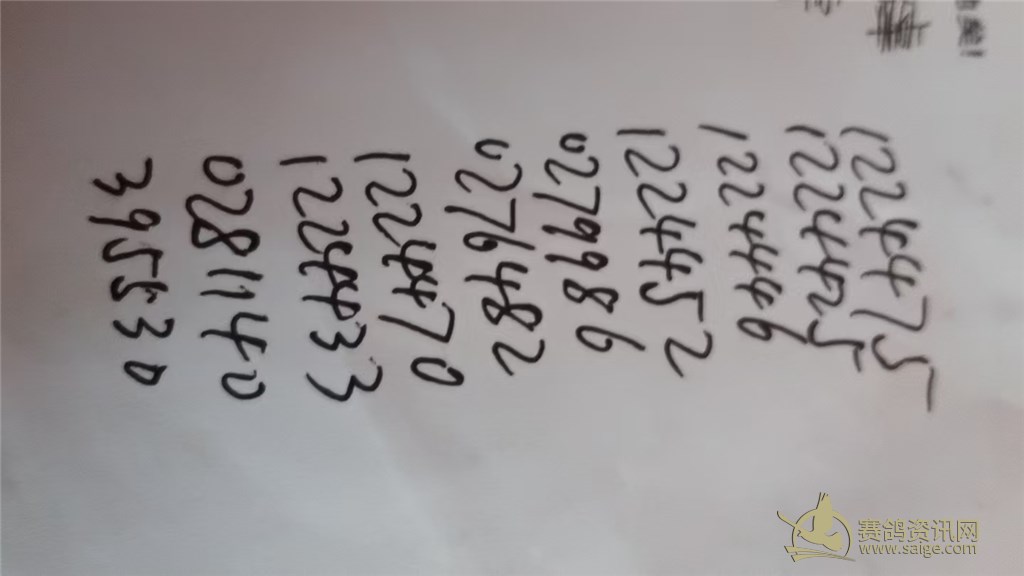 1224475
1224425
1224446
1224452
0279986
0276482
1224470
1224433
0281140
395530
赛鸽资讯网
www.saige.com